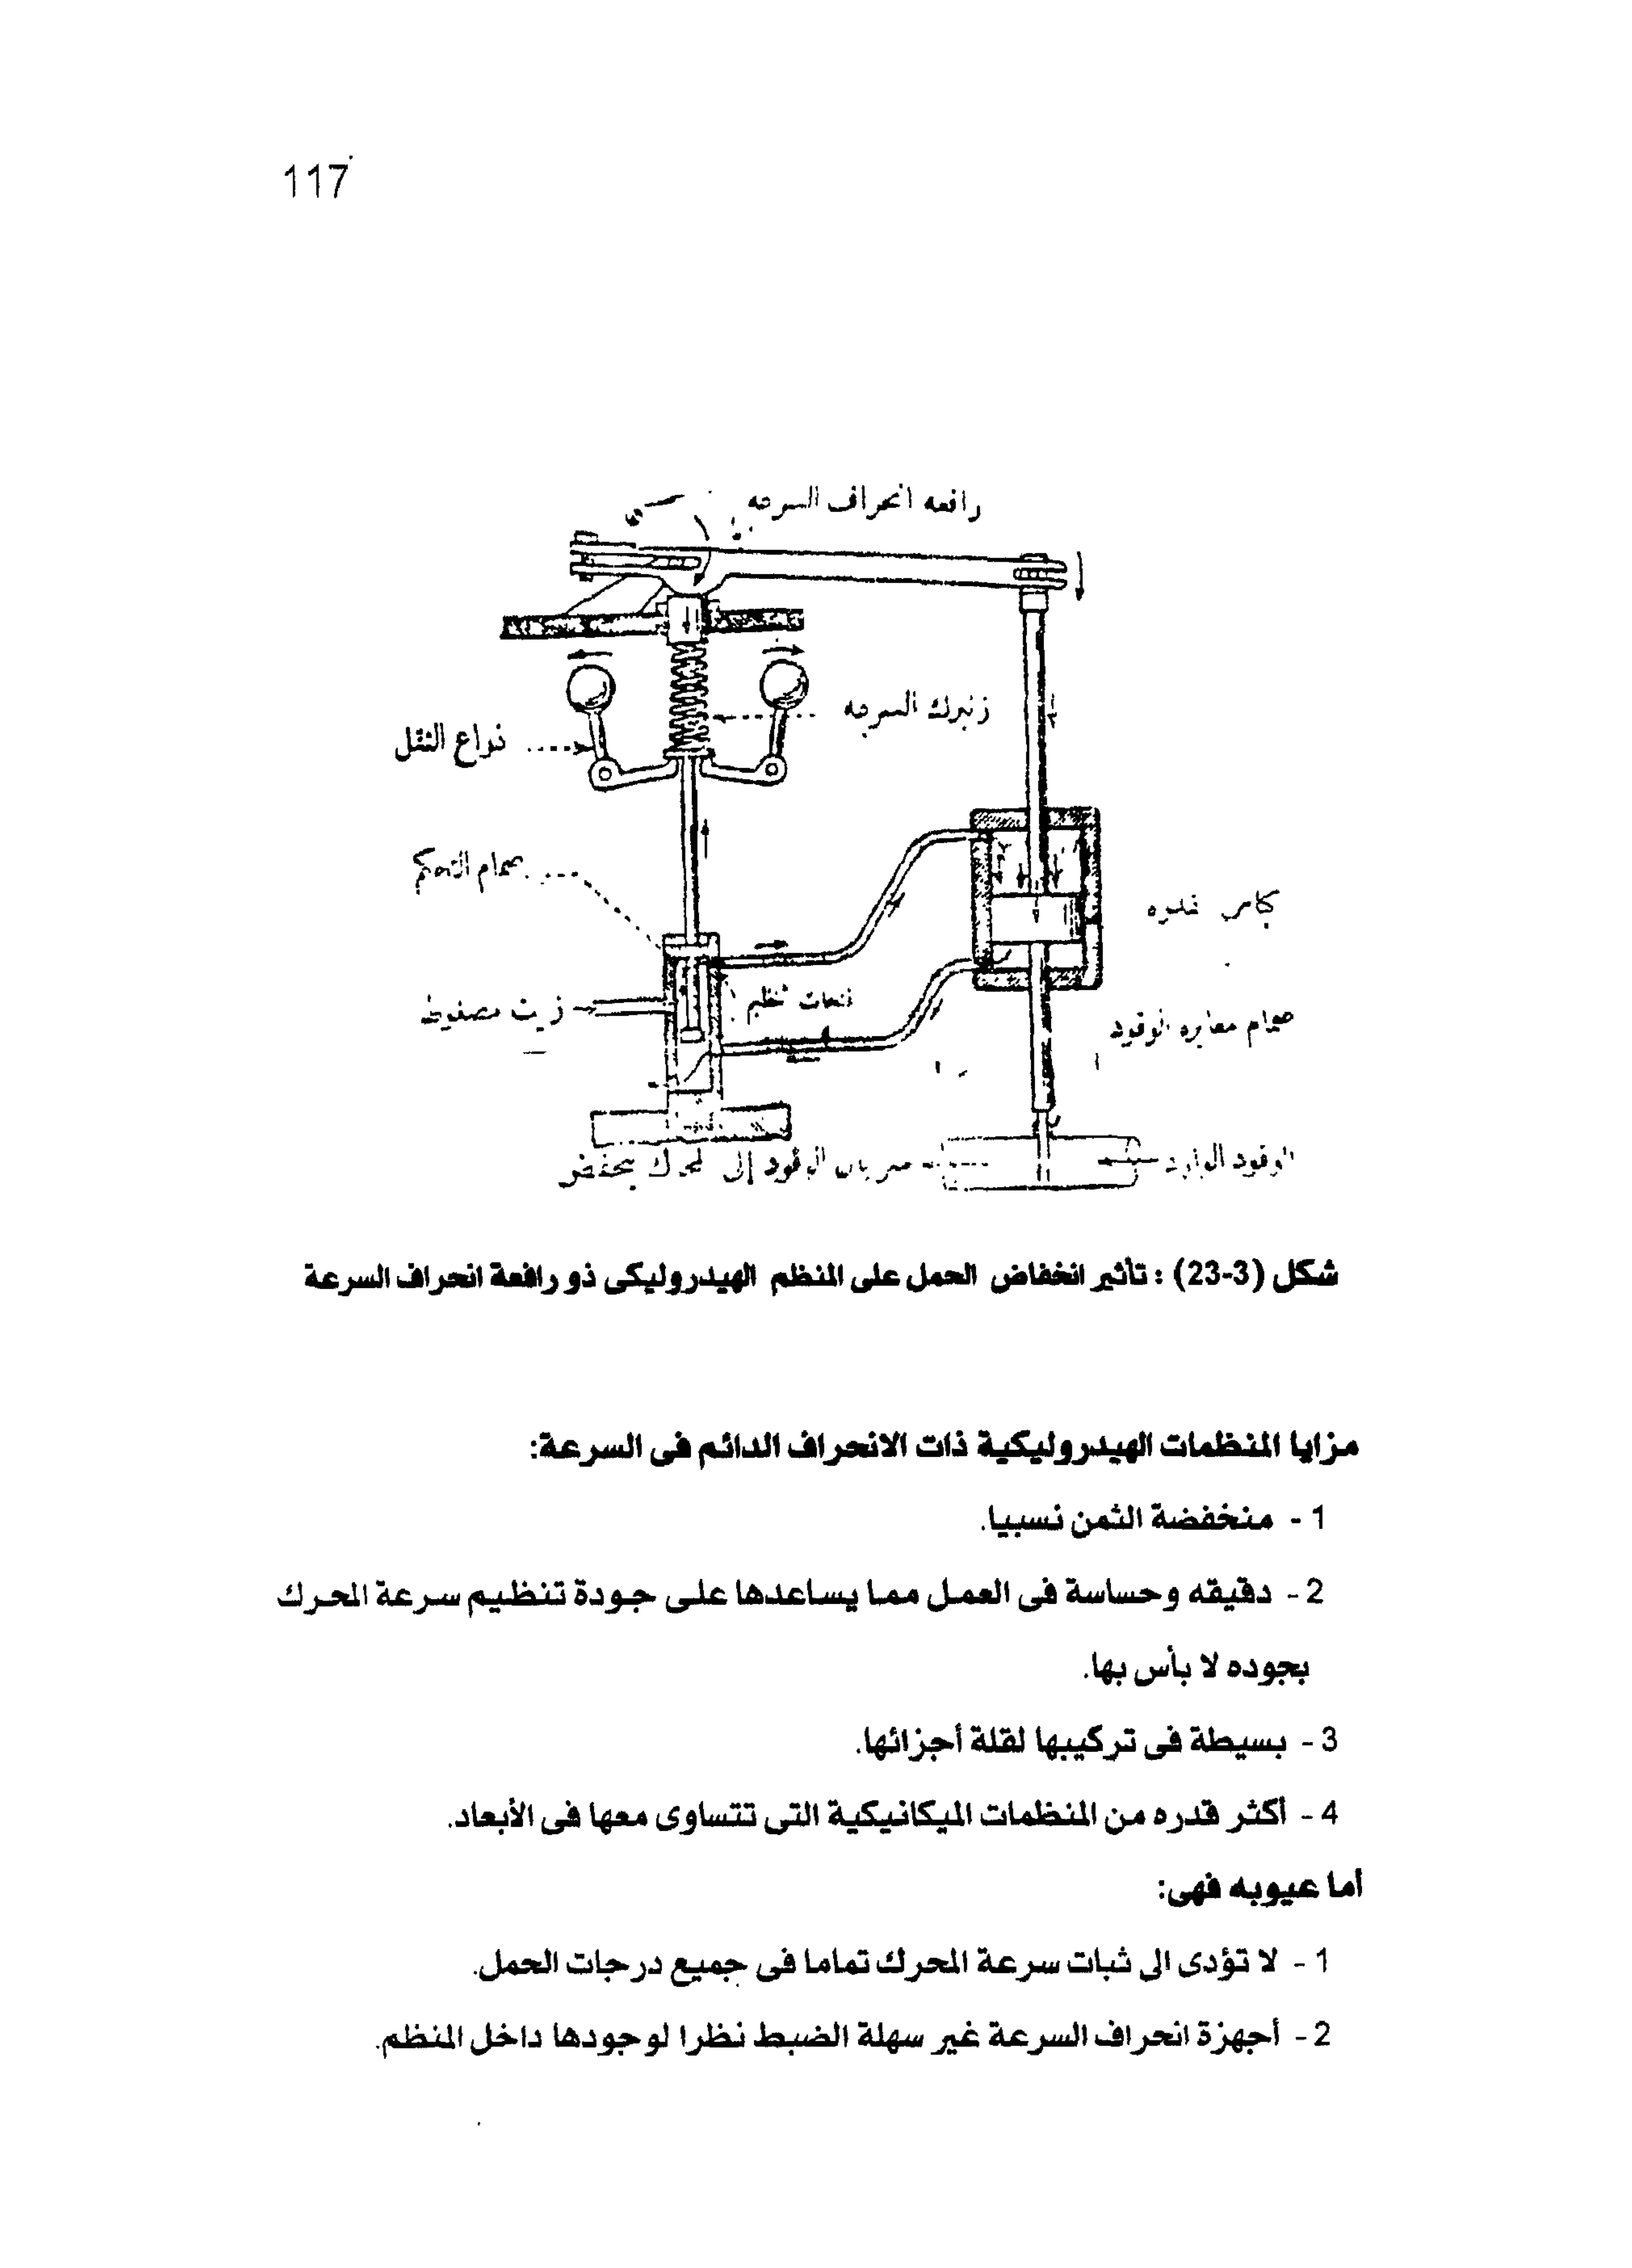 117
رافعه انحراف السرعه
زنبرك السرعه
ذراع الثقل
صمام التحكم
كباس قدره
فتحات تنظيم
زيت مضغوط
صمام معايره الوقود
الوقود الوارد
سريان الوقود إلى المحرك ينخفض
شكل (3-23) : تأثير انخفاض الحمل على المنظم الهيدروليكى ذو رافعة انحراف السرعة
مزايا المنظمات الهيدروليكية ذات الانحراف الدائم فى السرعة:
1 - منخفضة الثمن نسبيا.
2 - دقيقه وحساسة فى العمل مما يساعدها على جودة تنظيم سرعة المحرك
بجوده لا بأس بها.
3 - بسيطة فى تركيبها لقلة أجزائها.
4 - أكثر قدره من المنظمات الميكانيكية التى تتساوى معها فى الأبعاد.
أما عيوبه فهى:
1 - لا تؤدى الى ثبات سرعة المحرك تماما فى جميع درجات الحمل.
2 - أجهزة انحراف السرعة غير سهلة الضبط نظرا لوجودها داخل المنظم.